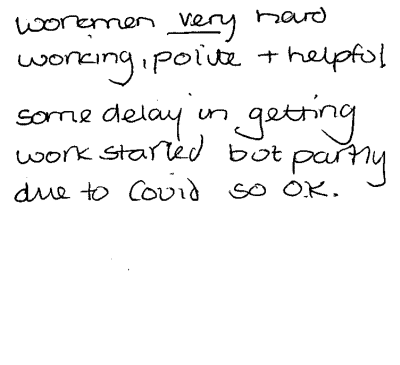 workmen very hard
working, polite + helpful
some delay in getting
work started but partly
due to Covid so O.K.